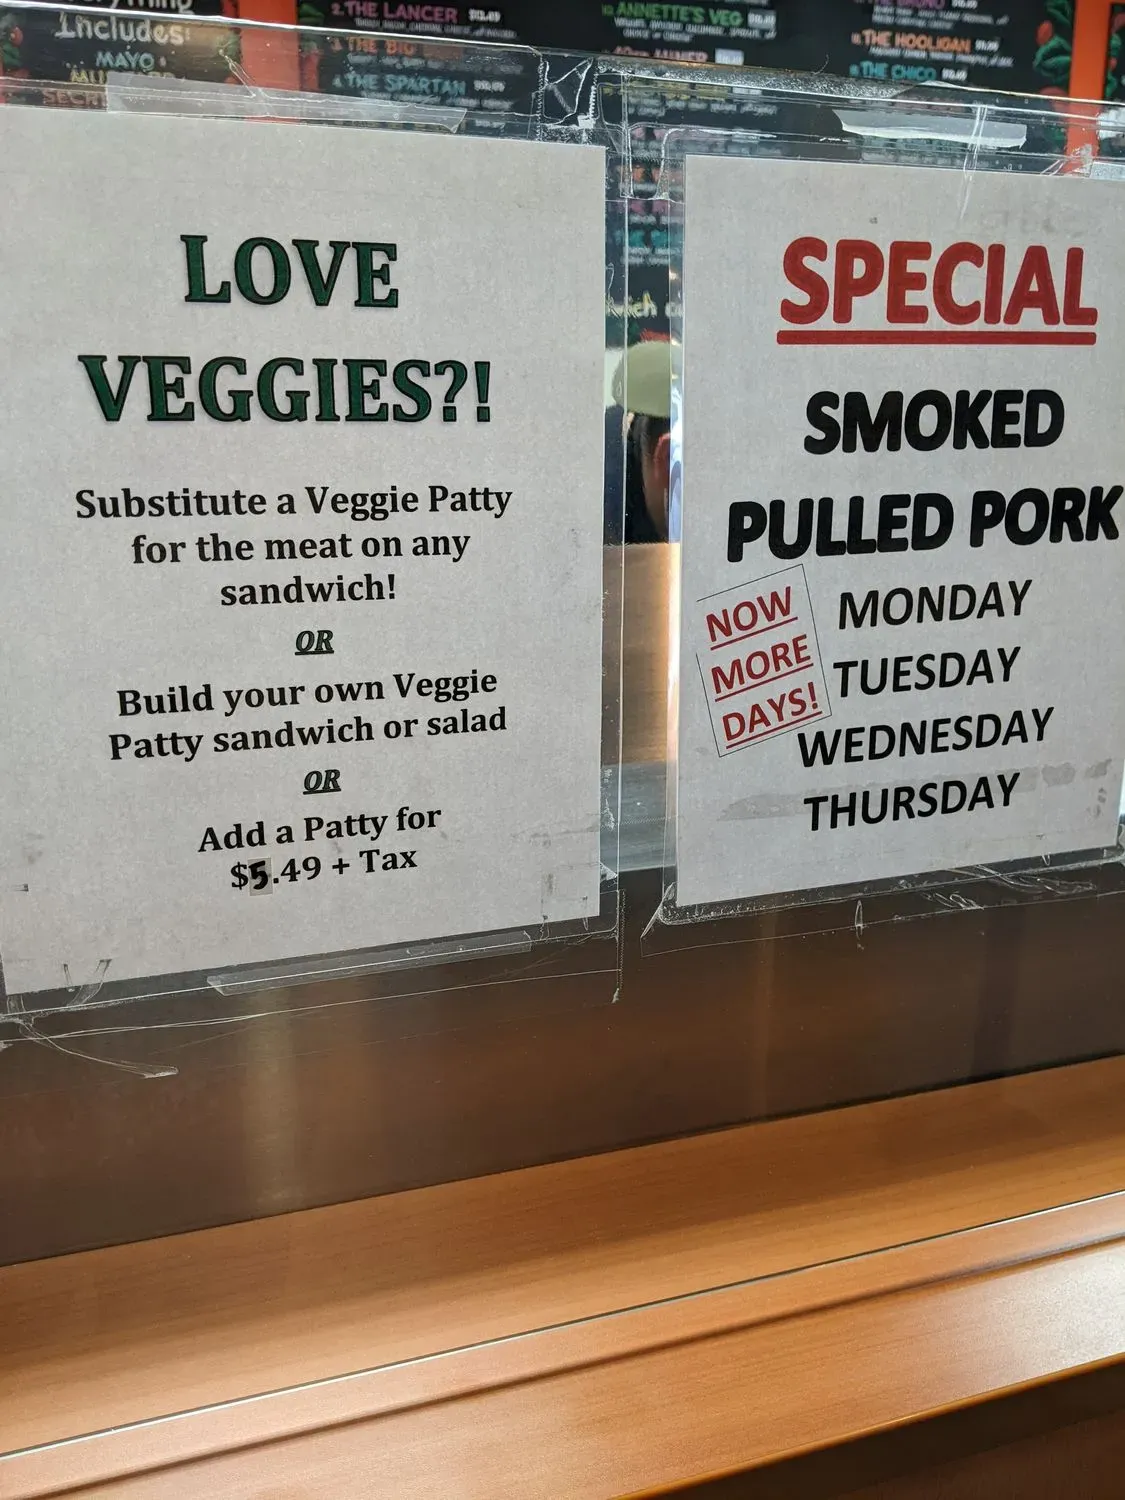 Includes:
MAYO
2. THE LANCER
THE BIG
THE SPARTAN
ANNETTE'S VEG
THE HOOLIGAN
THE CHICO
LOVE
VEGGIES?!
Substitute a Veggie Patty
for the meat on any
sandwich!
OR
Build your own Veggie
Patty sandwich or salad
OR
Add a Patty for
$5.49 + Tax
SPECIAL
SMOKED
PULLED PORK
NOW
MORE
DAYS!
MONDAY
TUESDAY
WEDNESDAY
THURSDAY